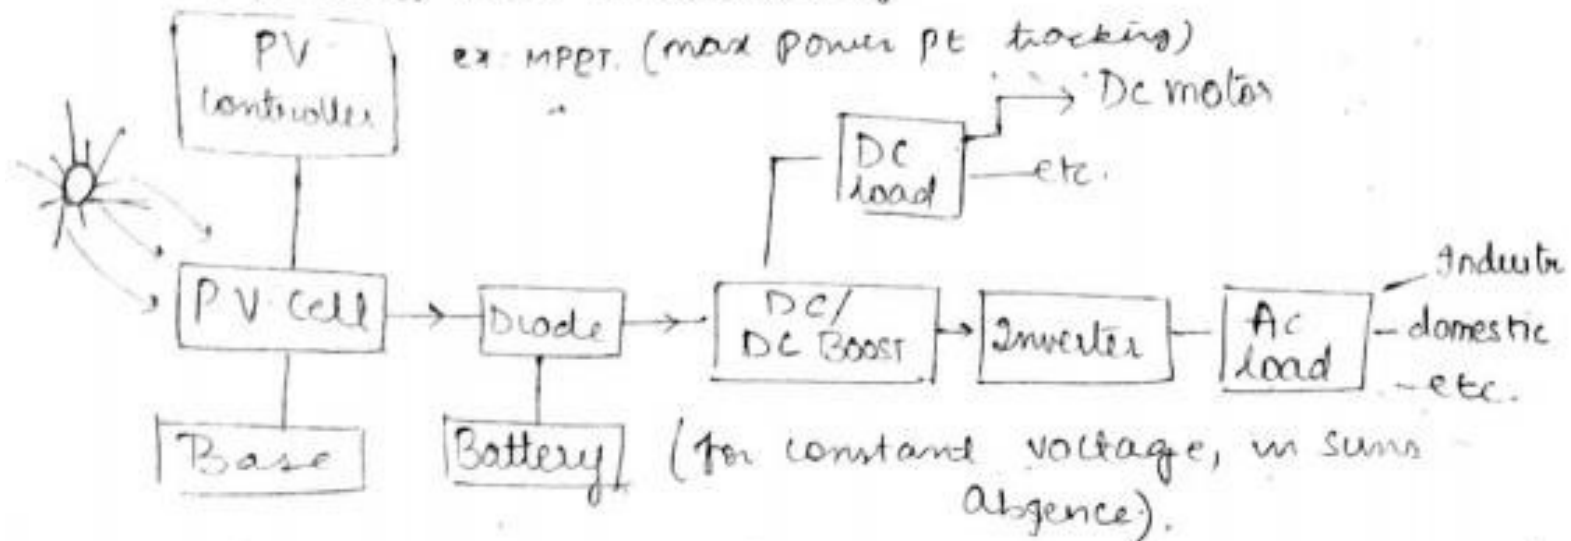 PV
controller
ex. MPPT. (max power pt tracking)
DC motor
DC
load
etc.
PV cell
Diode
DC/
DC BOOST
Inverter
AC
load
Industr
domestic
etc.
Base
Battery
(for constant voltage, in suns
absence).